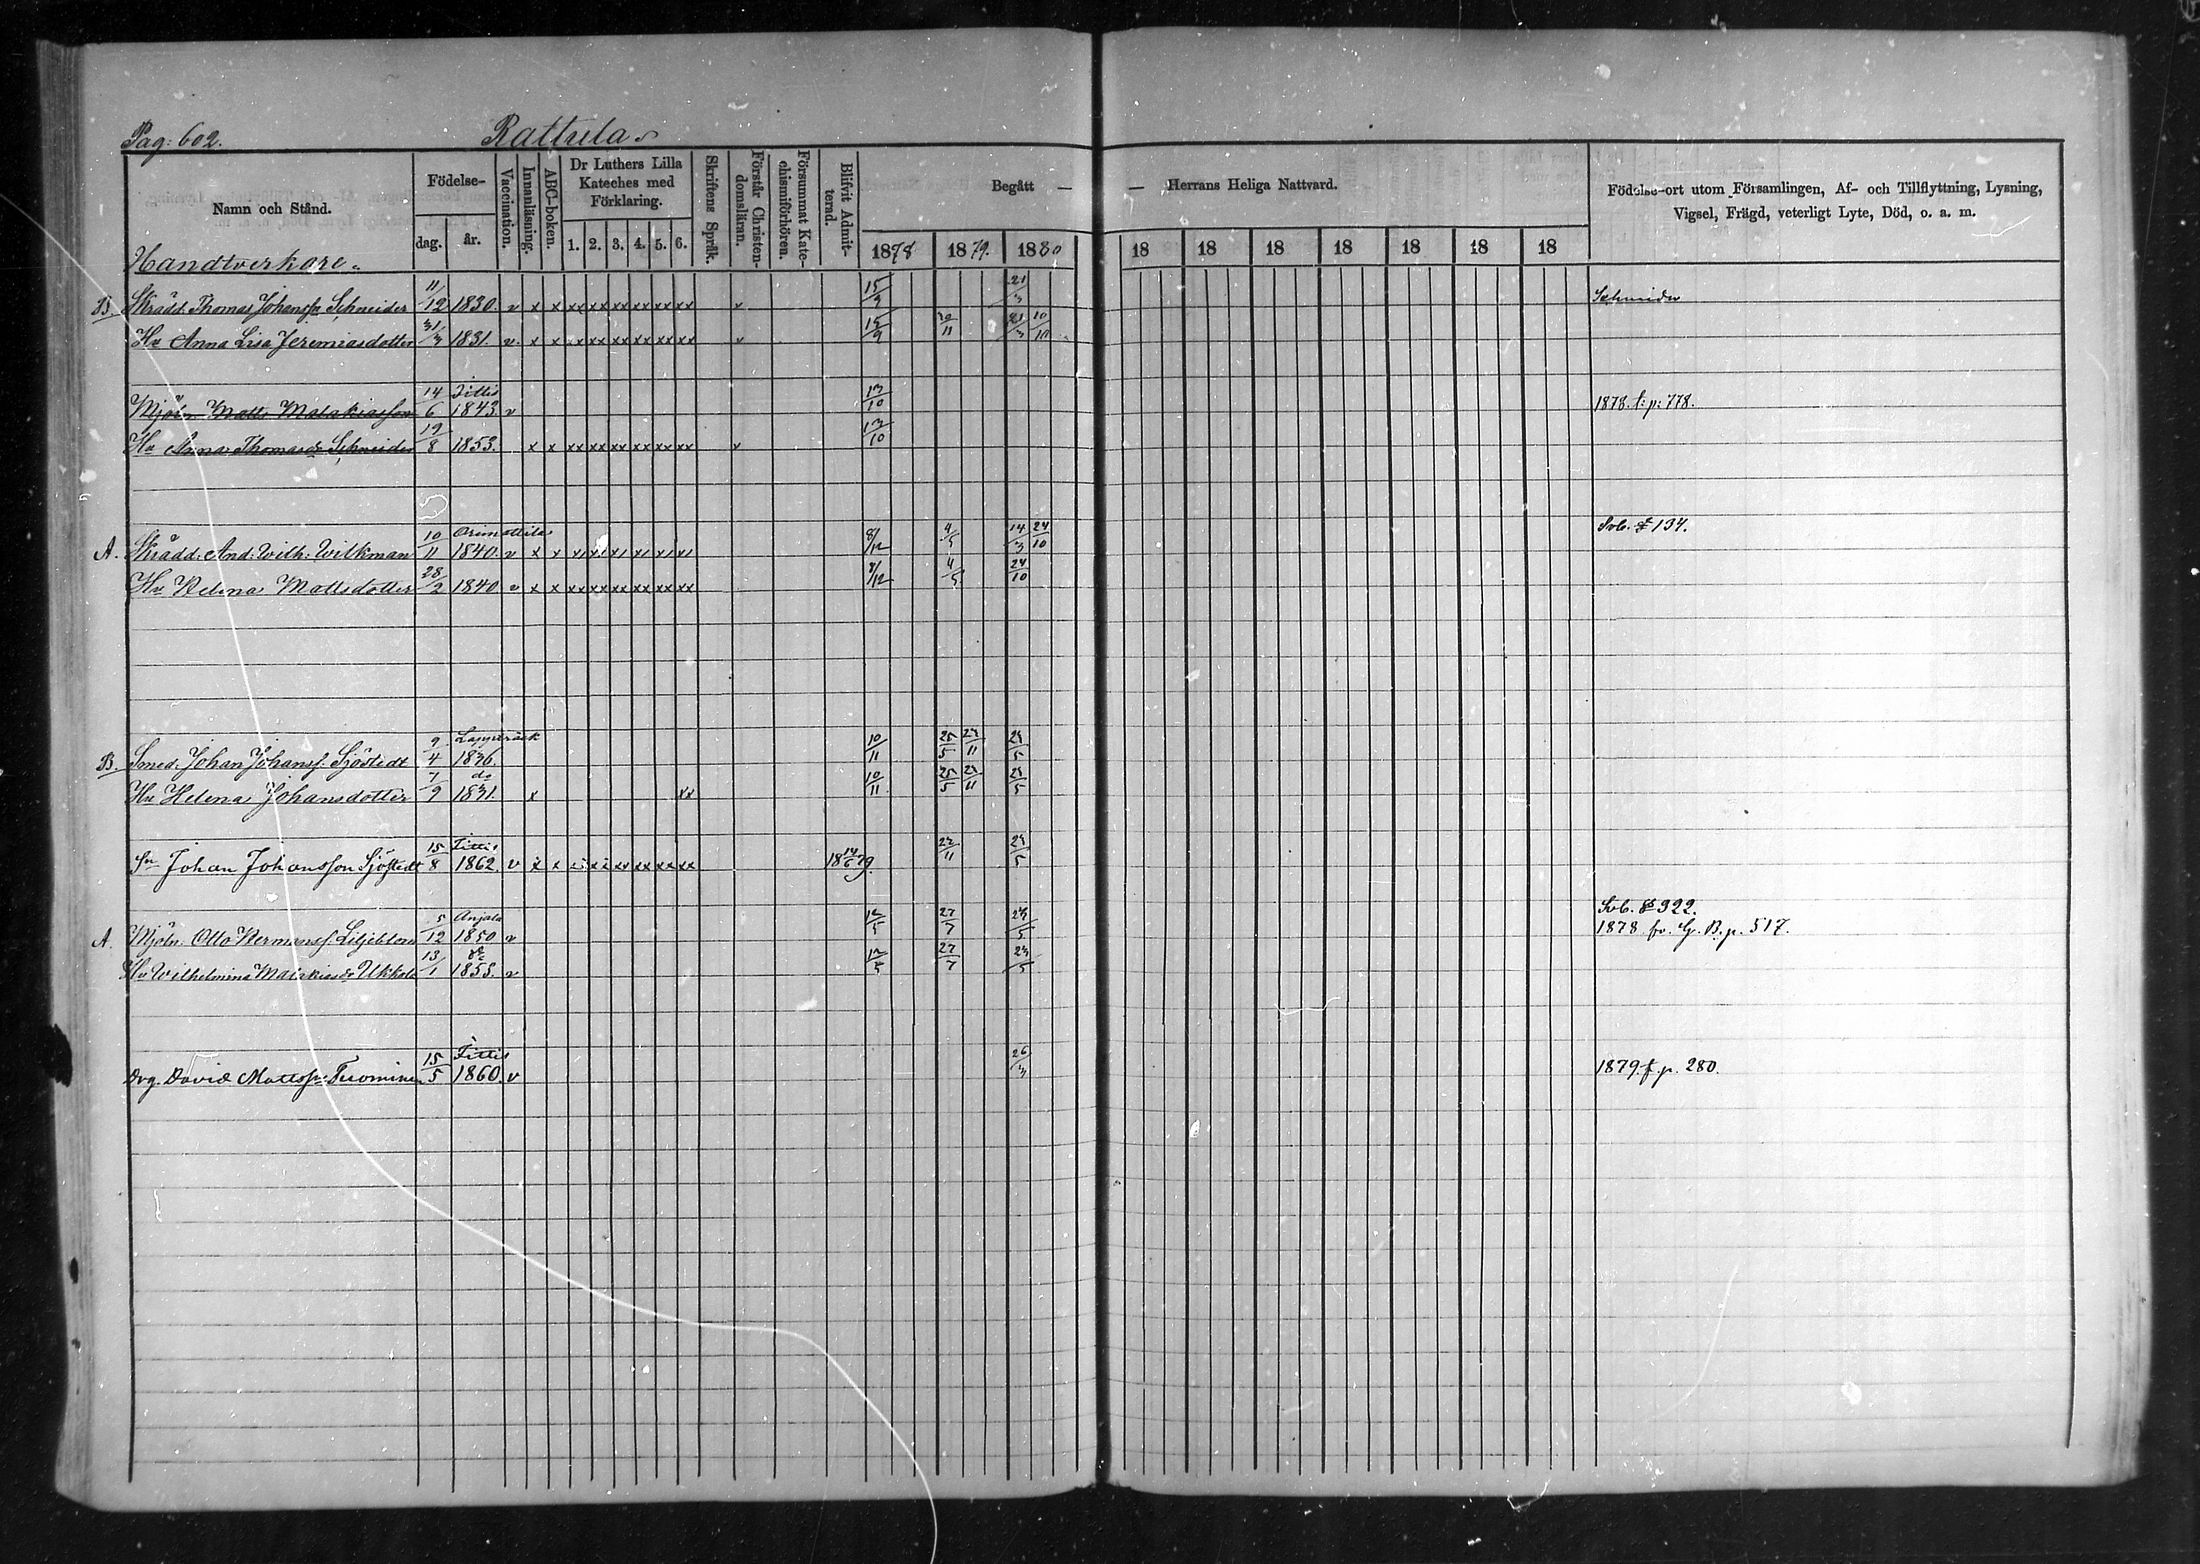 Pag: 602. Rattula
Namn och Stånd. Födelse- dag. år. Vaccination. Innanläsning. ABC-boken. Dr Luthers Lilla Kateches med Förklaring. 1. 2. 3. 4. 5. 6. Skriftens Språk. Förstår Christendomsläran. Försummat Katechismiförhören. Blifvit Admitterad. Begått — — Herrans Heliga Nattvard. Födelse-ort utom Församlingen, Af- och Tillflyttning, Lysning, Vigsel, Frägd, veterligt Lyte, Död, o. a. m.
1878 1879. 1880 18 18 18 18 18 18 18
Handtverkare.
B. Skrädd. Thomas Johansson Schneider 11/12 1830. v x x xx xx xx xx xx xx v 15/9 21/3 Schneider
Hu Anna Lisa Jeremiasdotter 31/3 1831. v. x x xx xx xx xx xx xx v 15/9 30/11 21/3 10/10
Mjöln. Matts Malakiasson 14/6 Jittis 1843 v 13/10 1878. t: p: 778.
Hu Anna Thomasdr Schneider 19/8 1853. x x xx xx xx xx xx xx v 13/10
A. Skrädd. And. Wilh. Wilkman 10/11 Orimattila 1840. v x x 8/12 4/5 14/3 24/10 Svb. # 134.
Hu Helena Mattsdotter 28/2 1840 v x x xx xx xx xx xx xx 8/12 4/5 24/10
B. Smed. Johan Johanss. Sjöstedt 9/4 Lappträsk 1836. 10/11 25/5 23/11 23/5
Hu Helena Johansdotter 7/9 do 1831. x xx 10/11 25/5 23/11 23/5
Sn Johan Johansson Sjöstedt 15/8 Jittis 1862. v x x xx xx xx xx xx xx 18 14/6 79. 23/11 23/5
A. Mjöln. Otto Hermanss. Liljeblom 5/12 Anjala 1850 v 12/5 27/7 23/5 Svb. # 322.
1878 fr. G. B. p. 517.
Hu Wilhelmina Malakiasdr Ukkola 13/1 do 1855. v 12/5 27/7 23/5
Drg. David Mattsson Tuominen 15/5 Jittis 1860. v 26/3 1879. f. p. 280.